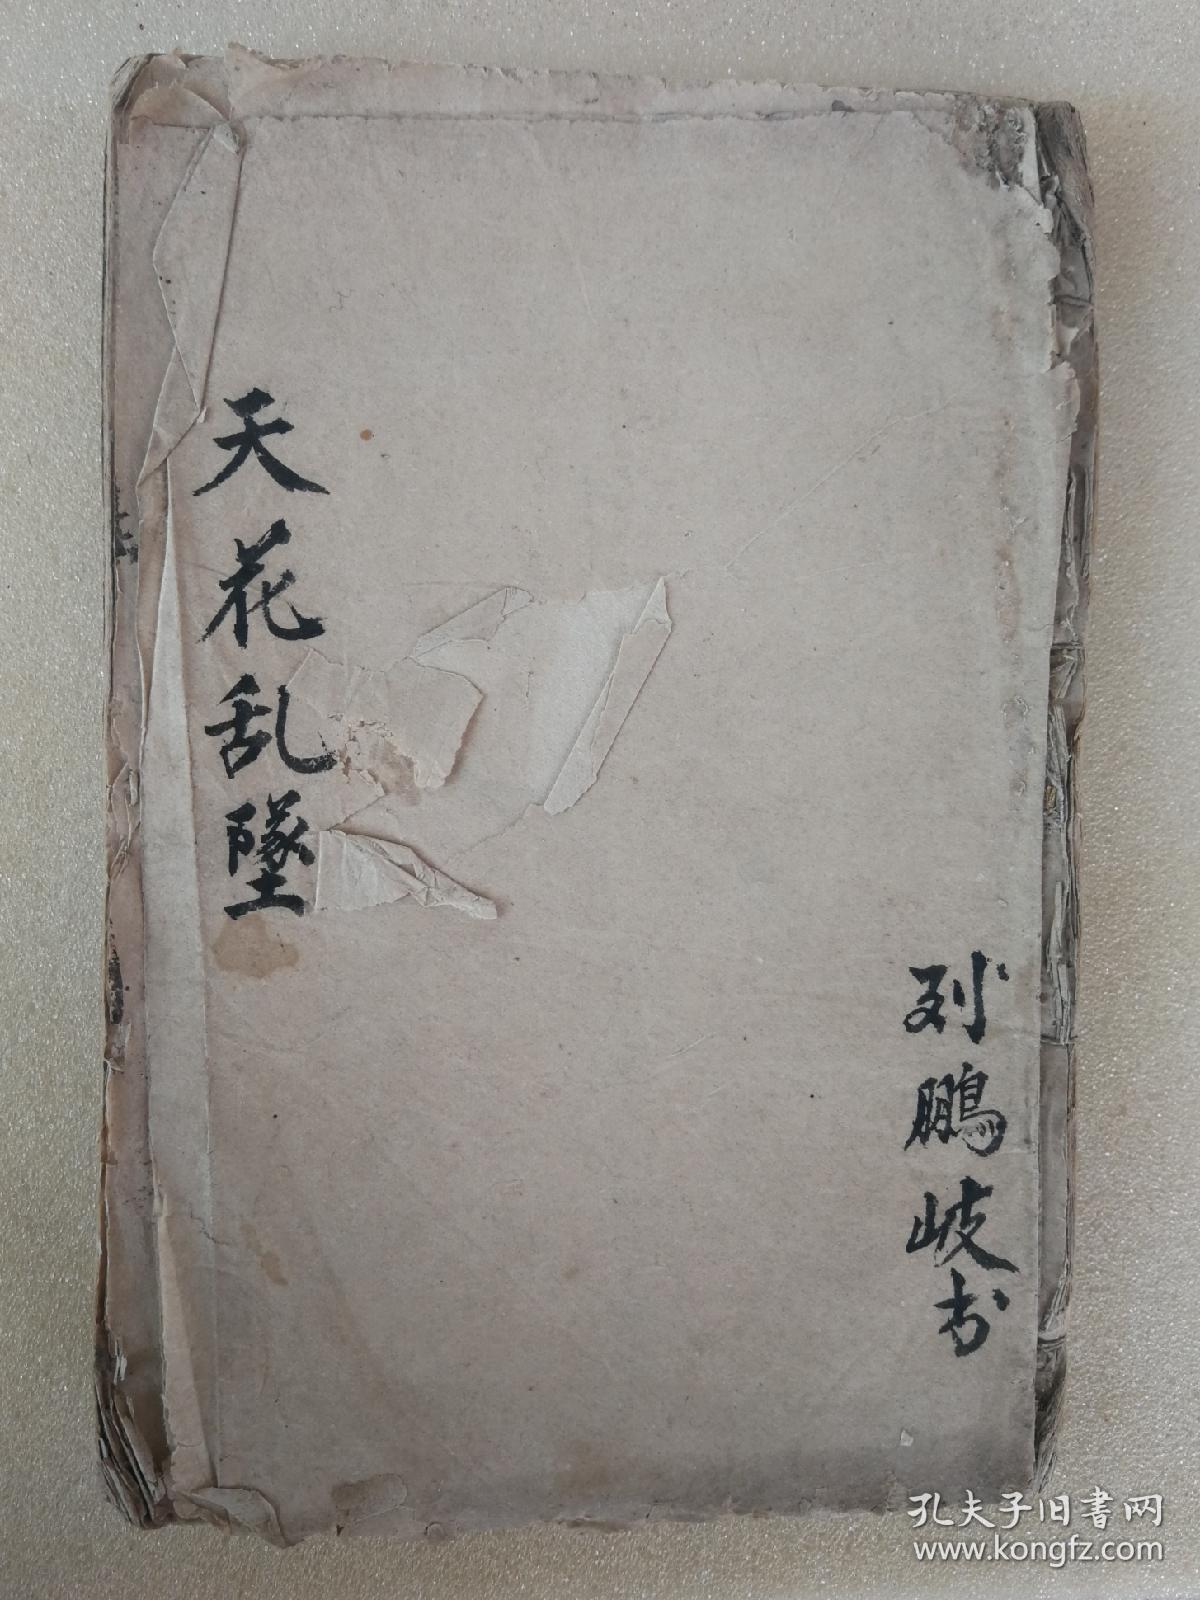 天花乱墜
刘鵬岐书
孔夫子旧書网
www.kongfz.com